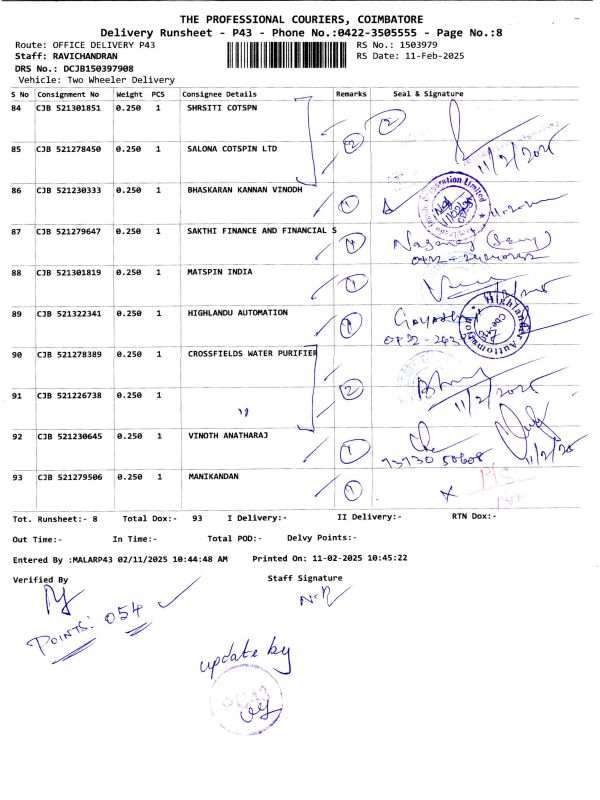 THE PROFESSIONAL COURIERS, COIMBATORE
Delivery Runsheet - P43 - Phone No.:0422-3505555 - Page No.:8
Route: OFFICE DELIVERY P43 RS No.: 1503979
Staff: RAVICHANDRAN RS Date: 11-Feb-2025
DRS No.: DCJB150397908
Vehicle: Two Wheeler Delivery
S No Consignment No Weight PCS Consignee Details Remarks Seal & Signature
84 CJB 521301851 0.250 1 SHRSITI COTSPN 2 2
11/2/2025
85 CJB 521278450 0.250 1 SALONA COTSPIN LTD
86 CJB 521230333 0.250 1 BHASKARAN KANNAN VINODH 1
87 CJB 521279647 0.250 1 SAKTHI FINANCE AND FINANCIAL S 1
88 CJB 521301819 0.250 1 MATSPIN INDIA 1
89 CJB 521322341 0.250 1 HIGHLANDU AUTOMATION 1
90 CJB 521278389 0.250 1 CROSSFIELDS WATER PURIFIER
2
91 CJB 521226738 0.250 1 "
11/2/2025
92 CJB 521230645 0.250 1 VINOTH ANATHARAJ 1
11/2/25
93 CJB 521279506 0.250 1 MANIKANDAN 1
Tot. Runsheet:- 8 Total Dox:- 93 I Delivery:- II Delivery:- RTN Dox:-
Out Time:- In Time:- Total POD:- Delvy Points:-
Entered By :MALARP43 02/11/2025 10:44:48 AM Printed On: 11-02-2025 10:45:22
Verified By Staff Signature
POINTS: 054
update by